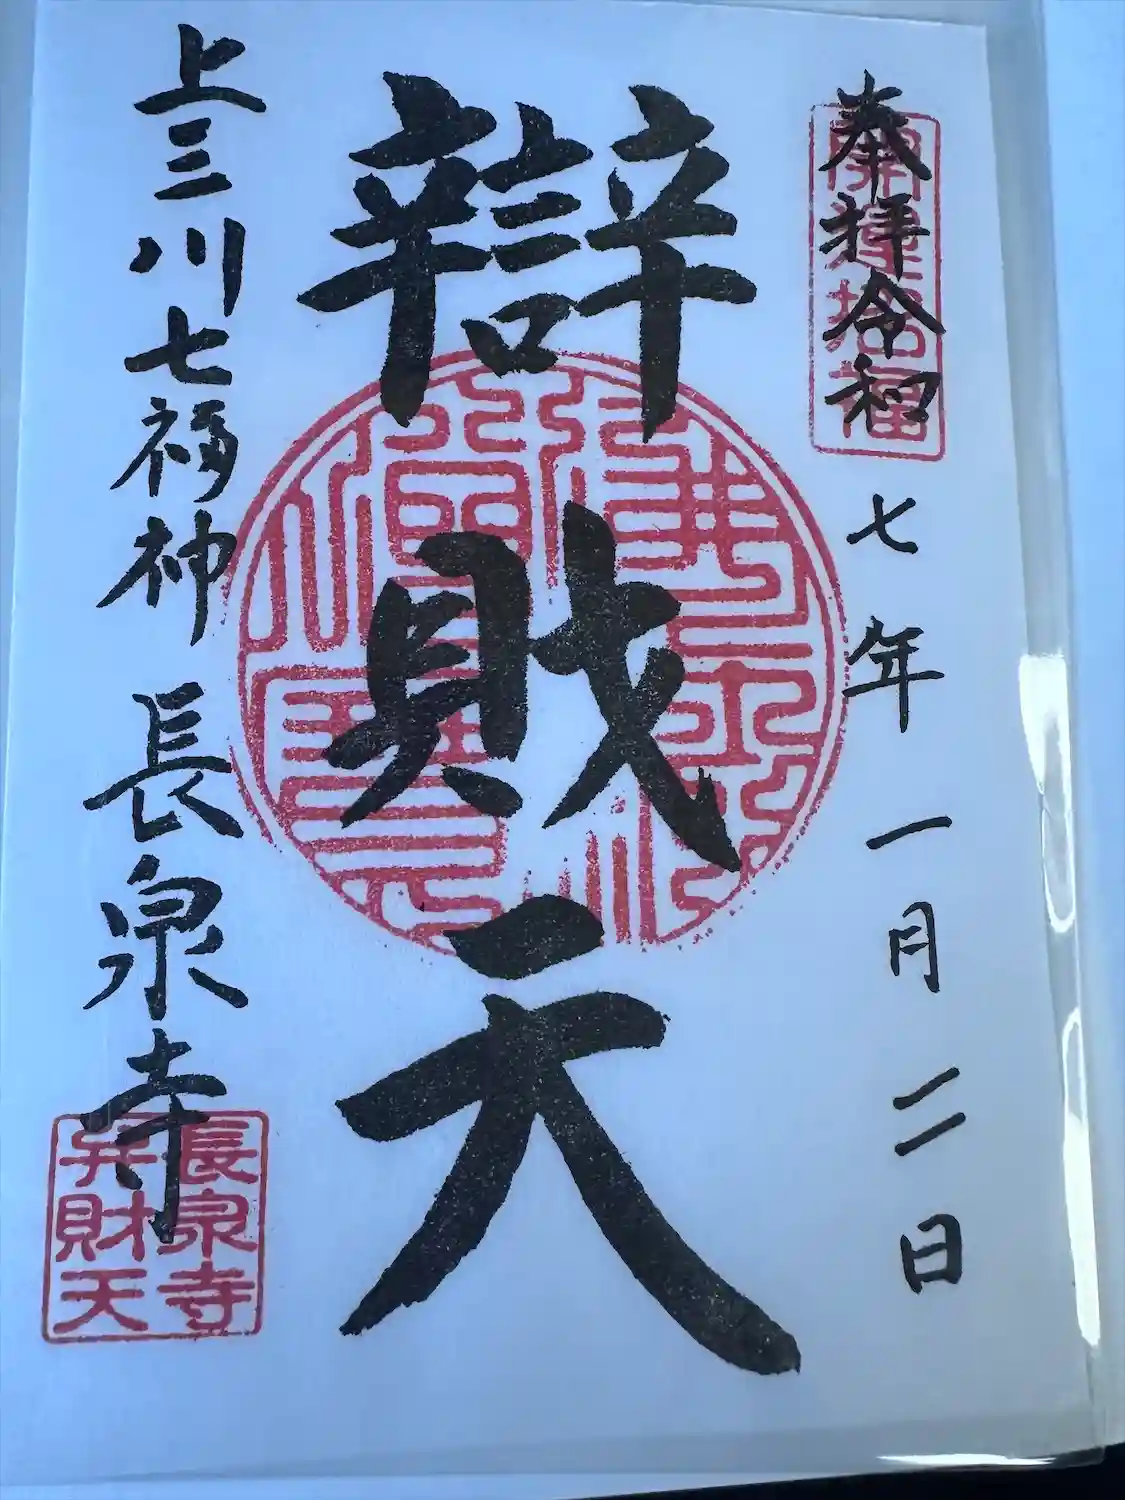 奉拝令和七年一月二日
開運招福
辯財天
上三川七福神 長泉寺
長泉寺
弁財天